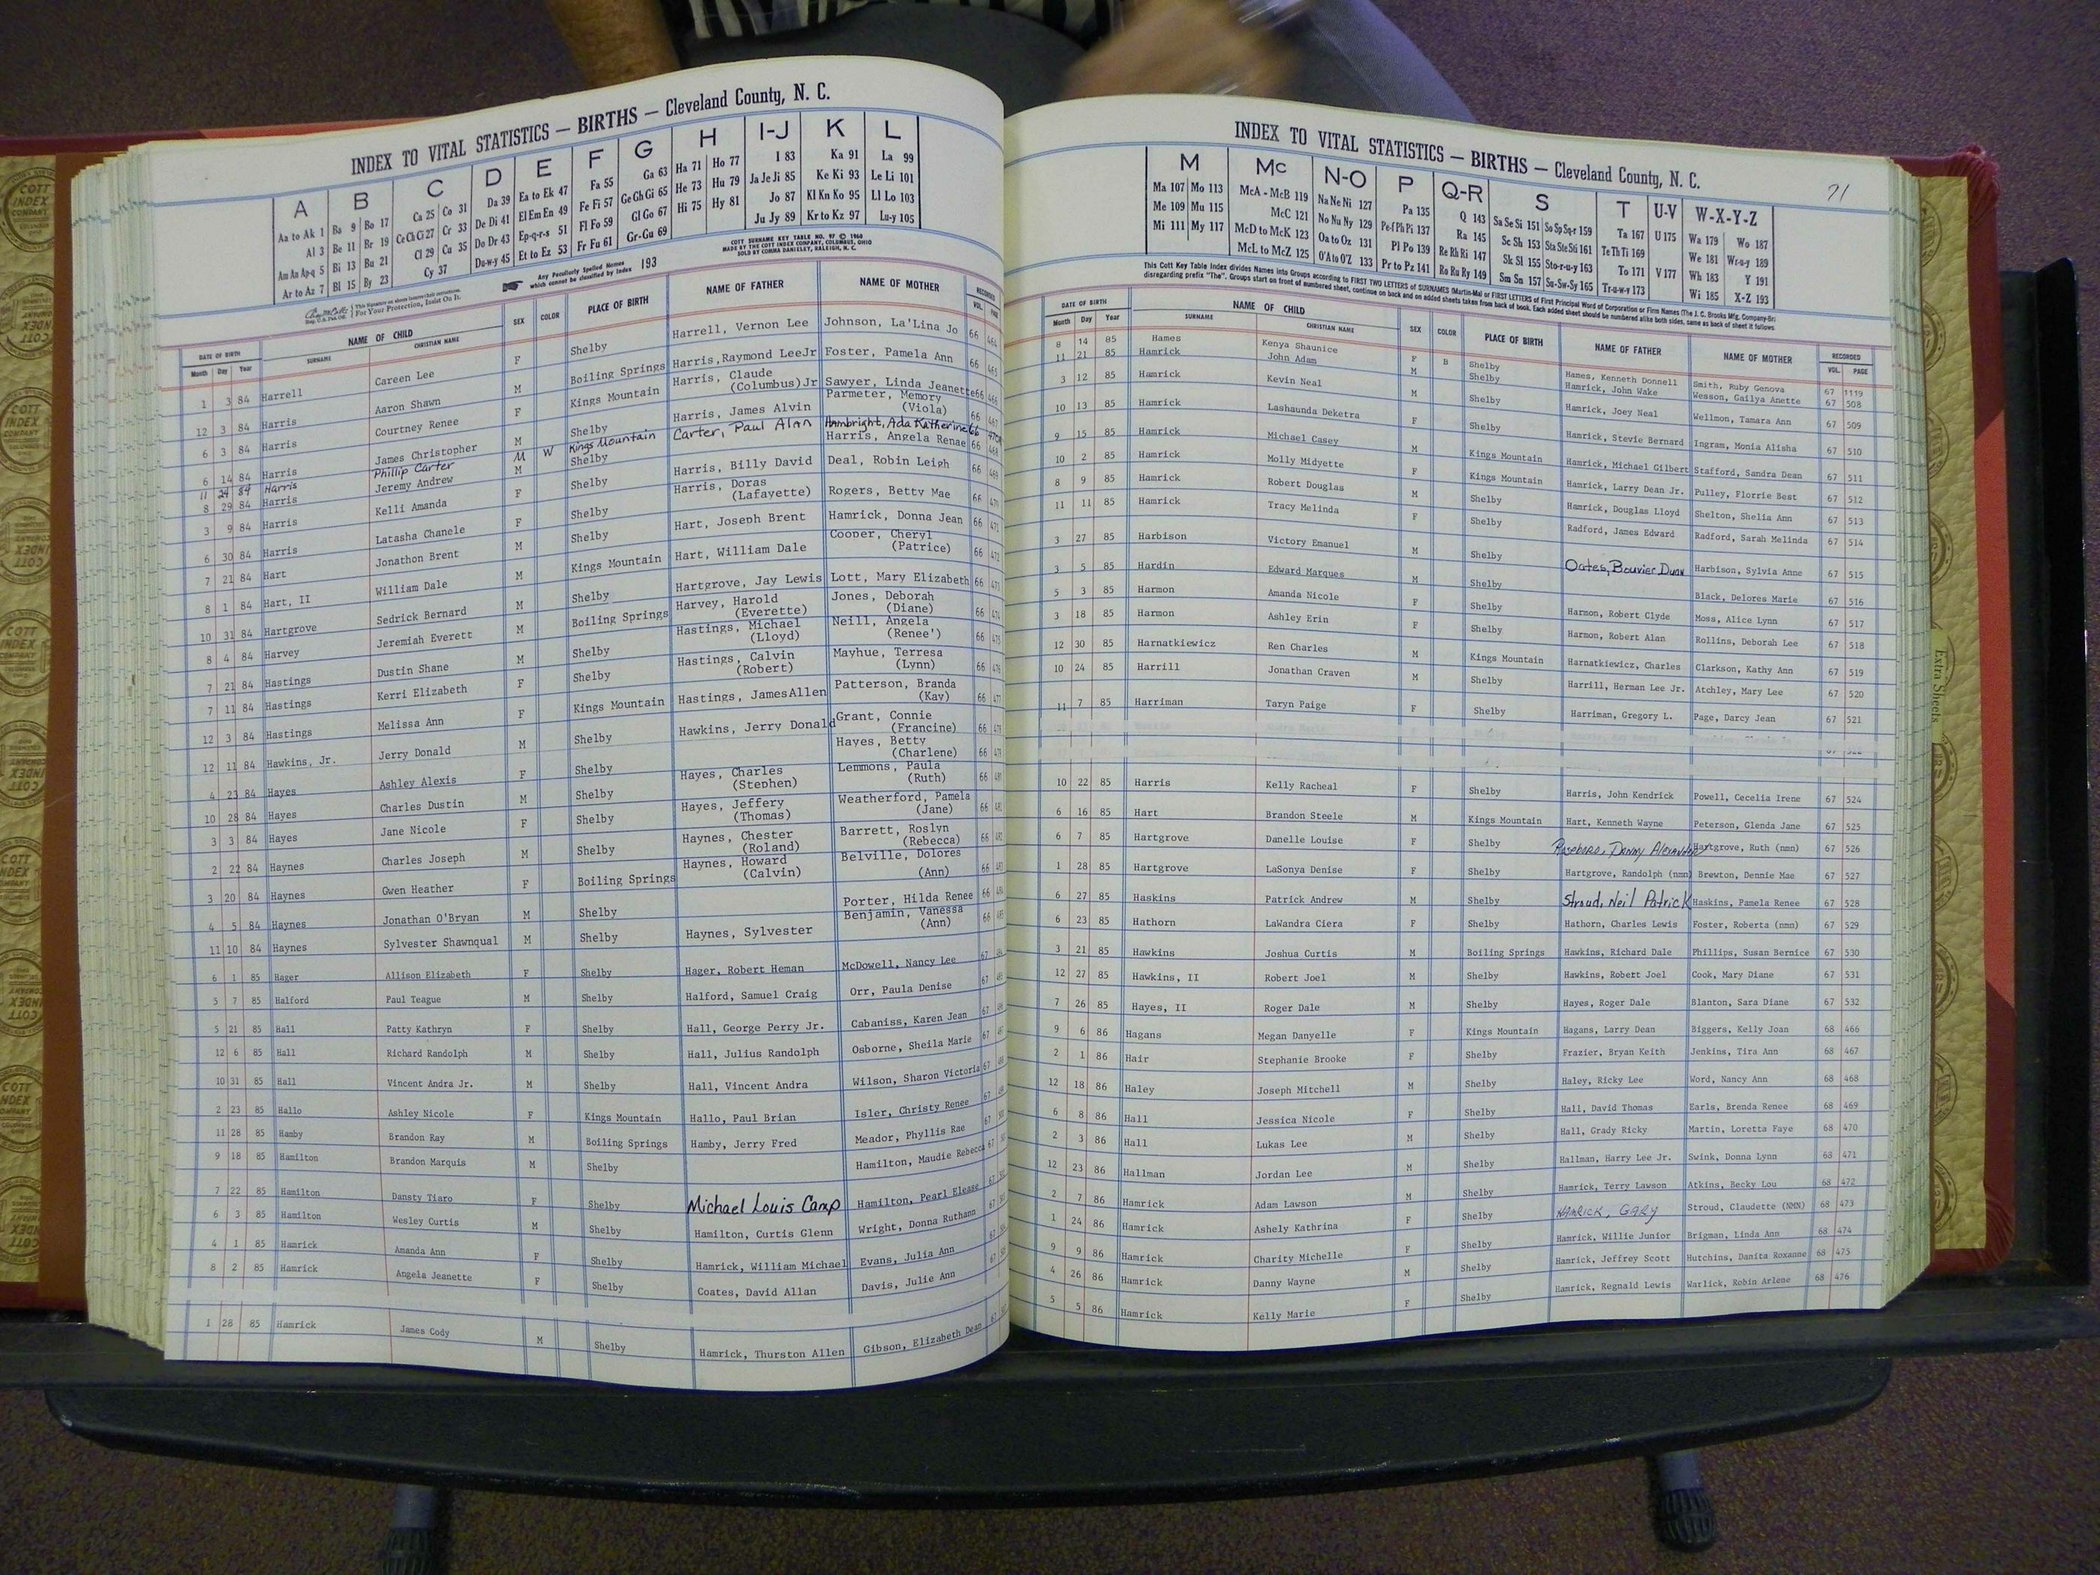 INDEX TO VITAL STATISTICS — BIRTHS — Cleveland County, N. C.
A B C D E F G H I-J K L
Aa to Ak 1 Ba 9 Bo 17 Ca 25 Co 31 Da 39 Ea to Ek 47 Fa 55 Ga 63 Ha 71 Ho 77 I 83 Ka 91 La 99
Al 3 Be 11 Br 19 Ce Ch Ci 27 Cr 33 De Di 41 El Em En 49 Fe Fi 57 Ge Gh Gi 65 He 73 Hu 79 Ja Je Ji 85 Ke Ki 93 Le Li 101
Am An Ap-q 5 Bi 13 Bu 21 Cl 29 Cu 35 Do Dr 43 Ep-q-r-s 51 Fl Fo 59 Gl Go 67 Hi 75 Hy 81 Jo 87 Kl Kn Ko 95 Ll Lo 103
Ar to Az 7 Bl 15 By 23 Cy 37 Du-w-y 45 Et to Ez 53 Fr Fu 61 Gr-Gu 69 Ju Jy 89 Kr to Kz 97 Lu-y 105
COTT SURNAME KEY TABLE NO. 97 © 1960
MADE BY THE COTT INDEX COMPANY, COLUMBUS, OHIO
SOLD BY COMMA DANIELEY, RALEIGH, N. C.
For Your Protection, Insist On It.
Any Peculiarly Spelled Names which cannot be classified by Index 193
DATE OF BIRTH NAME OF CHILD SEX COLOR PLACE OF BIRTH NAME OF FATHER NAME OF MOTHER RECORDED
Month Day Year SURNAME CHRISTIAN NAME VOL. PAGE
1 3 84 Harrell Careen Lee F Shelby Harrell, Vernon Lee Johnson, La'Lina Jo 66 464
12 3 84 Harris Aaron Shawn M Boiling Springs Harris,Raymond LeeJr Foster, Pamela Ann 66 465
6 3 84 Harris Courtney Renee F Kings Mountain Harris, Claude (Columbus)Jr Sawyer, Linda Jeanette 66 466
6 14 84 Harris James Christopher M Shelby Harris, James Alvin Parmeter, Memory (Viola) 66 467
11 24 84 Harris Phillip Carter M W Kings Mountain Carter, Paul Alan Hambright, Ada Katherine 66
8 29 84 Harris Jeremy Andrew M Shelby Harris, Angela Renae 66 468
3 9 84 Harris Kelli Amanda F Shelby Harris, Billy David Deal, Robin Leigh 66 469
6 30 84 Harris Latasha Chanele F Shelby Harris, Doras (Lafayette) Rogers, Betty Mae 66 470
7 21 84 Hart Jonathon Brent M Shelby Hart, Joseph Brent Hamrick, Donna Jean 66 471
8 1 84 Hart, II William Dale M Kings Mountain Hart, William Dale Cooper, Cheryl (Patrice) 66 472
10 31 84 Hartgrove Sedrick Bernard M Shelby Hartgrove, Jay Lewis Lott, Mary Elizabeth 66 473
8 4 84 Harvey Jeremiah Everett M Boiling Springs Harvey, Harold (Everette) Jones, Deborah (Diane) 66 474
7 21 84 Hastings Dustin Shane M Shelby Hastings, Michael (Lloyd) Neill, Angela (Renee') 66 475
7 11 84 Hastings Kerri Elizabeth F Shelby Hastings, Calvin (Robert) Mayhue, Terresa (Lynn) 66 476
12 3 84 Hastings Melissa Ann F Kings Mountain Hastings, JamesAllen Patterson, Branda (Kay) 66 477
12 11 84 Hawkins, Jr. Jerry Donald M Shelby Hawkins, Jerry Donald Grant, Connie (Francine) 66 478
4 23 84 Hayes Ashley Alexis F Shelby Hayes, Betty (Charlene) 66 479
10 28 84 Hayes Charles Dustin M Shelby Hayes, Charles (Stephen) Lemmons, Paula (Ruth) 66
3 3 84 Hayes Jane Nicole F Shelby Hayes, Jeffery (Thomas) Weatherford, Pamela (Jane) 66 481
2 22 84 Haynes Charles Joseph M Shelby Haynes, Chester (Roland) Barrett, Roslyn (Rebecca) 66 482
3 20 84 Haynes Gwen Heather F Boiling Springs Haynes, Howard (Calvin) Belville, Dolores (Ann) 66 483
4 5 84 Haynes Jonathan O'Bryan M Shelby Porter, Hilda Renee 66 484
11 10 84 Haynes Sylvester Shawnqual M Shelby Haynes, Sylvester Benjamin, Vanessa (Ann) 66 485
6 1 85 Hager Allison Elizabeth F Shelby Hager, Robert Heman McDowell, Nancy Lee 67
5 7 85 Halford Paul Teague M Shelby Halford, Samuel Craig Orr, Paula Denise 67
5 21 85 Hall Patty Kathryn F Shelby Hall, George Perry Jr. Cabaniss, Karen Jean 67
12 6 85 Hall Richard Randolph M Shelby Hall, Julius Randolph Osborne, Sheila Marie 67
10 31 85 Hall Vincent Andra Jr. M Shelby Hall, Vincent Andra Wilson, Sharon Victoria 67
2 23 85 Hallo Ashley Nicole F Kings Mountain Hallo, Paul Brian Isler, Christy Renee 67
11 28 85 Hamby Brandon Ray M Boiling Springs Hamby, Jerry Fred Meador, Phyllis Rae 67
9 18 85 Hamilton Brandon Marquis M Shelby Hamilton, Maudie Rebecca 67
7 22 85 Hamilton Dansty Tiaro F Shelby Michael Louis Camp Hamilton, Pearl Elease 67
6 3 85 Hamilton Wesley Curtis M Shelby Hamilton, Curtis Glenn Wright, Donna Ruthann 67
4 1 85 Hamrick Amanda Ann F Shelby Hamrick, William Michael Evans, Julia Ann 67
8 2 85 Hamrick Angela Jeanette F Shelby Coates, David Allan Davis, Julie Ann 67
1 28 85 Hamrick James Cody M Shelby Hamrick, Thurston Allen Gibson, Elizabeth Dean 67
INDEX TO VITAL STATISTICS — BIRTHS — Cleveland County, N. C.
71
M Mc N-O P Q-R S T U-V W-X-Y-Z
Ma 107 Mo 113 McA - McB 119 Na Ne Ni 127 Pa 135 Q 143 Sa Se Si 151 So Sp Sq-r 159 Ta 167 U 175 Wa 179 Wo 187
Me 109 Mu 115 McC 121 No Nu Ny 129 Pe-f Ph Pi 137 Ra 145 Sc Sh 153 Sta Ste Sti 161 Te Th Ti 169 We 181 Wr-u-y 189
Mi 111 My 117 McD to McK 123 Oa to Oz 131 Pl Po 139 Re Rh Ri 147 Sk Sl 155 Sto-r-u-y 163 To 171 V 177 Wh 183 Y 191
McL to McZ 125 O'A to O'Z 133 Pr to Pz 141 Ro Ru Ry 149 Sm Sn 157 Su-Sw-Sy 165 Tr-u-w-y 173 Wi 185 X-Z 193
This Cott Key Table Index divides Names into Groups according to FIRST TWO LETTERS of SURNAMES (Martin-Ma) or FIRST LETTERS of First Principal Word of Corporation or Firm Names (The J. C. Brooks Mfg. Company-Br)
disregarding prefix "The". Groups start on front of numbered sheet, continue on back and on added sheets taken from back of book. Each added sheet should be numbered alike both sides, same as back of sheet it follows
DATE OF BIRTH NAME OF CHILD SEX COLOR PLACE OF BIRTH NAME OF FATHER NAME OF MOTHER RECORDED
Month Day Year SURNAME CHRISTIAN NAME VOL. PAGE
8 14 85 Hames Kenya Shaunice F B Shelby Hames, Kenneth Donnell Smith, Ruby Genova 67 1119
11 21 85 Hamrick John Adam M Shelby Hamrick, John Wake Wesson, Gailya Anette 67 508
3 12 85 Hamrick Kevin Neal M Shelby Hamrick, Joey Neal Wellmon, Tamara Ann 67 509
10 13 85 Hamrick Lashaunda Deketra F Shelby Hamrick, Stevie Bernard Ingram, Monia Alisha 67 510
9 15 85 Hamrick Michael Casey M Kings Mountain Hamrick, Michael Gilbert Stafford, Sandra Dean 67 511
10 2 85 Hamrick Molly Midyette F Kings Mountain Hamrick, Larry Dean Jr. Pulley, Florrie Best 67 512
8 9 85 Hamrick Robert Douglas M Shelby Hamrick, Douglas Lloyd Shelton, Shelia Ann 67 513
11 11 85 Hamrick Tracy Melinda F Shelby Radford, James Edward Radford, Sarah Melinda 67 514
3 27 85 Harbison Victory Emanuel M Shelby Oates, Bouvier Duan Harbison, Sylvia Anne 67 515
3 5 85 Hardin Edward Marques M Shelby Black, Delores Marie 67 516
5 3 85 Harmon Amanda Nicole F Shelby Harmon, Robert Clyde Moss, Alice Lynn 67 517
3 18 85 Harmon Ashley Erin F Shelby Harmon, Robert Alan Rollins, Deborah Lee 67 518
12 30 85 Harnatkiewicz Ren Charles M Kings Mountain Harnatkiewicz, Charles Clarkson, Kathy Ann 67 519
10 24 85 Harrill Jonathan Craven M Shelby Harrill, Herman Lee Jr. Atchley, Mary Lee 67 520
11 7 85 Harriman Taryn Paige F Shelby Harriman, Gregory L. Page, Darcy Jean 67 521
10 22 85 Harris Kelly Racheal F Shelby Harris, John Kendrick Powell, Cecelia Irene 67 524
6 16 85 Hart Brandon Steele M Kings Mountain Hart, Kenneth Wayne Peterson, Glenda Jane 67 525
6 7 85 Hartgrove Danelle Louise F Shelby Roseboro, Donny Alexander Hartgrove, Ruth (nmn) 67 526
1 28 85 Hartgrove LaSonya Denise F Shelby Hartgrove, Randolph (nmn) Brewton, Dennie Mae 67 527
6 27 85 Haskins Patrick Andrew M Shelby Stroud, Neil Patrick Haskins, Pamela Renee 67 528
6 23 85 Hathorn LaWandra Ciera F Shelby Hathorn, Charles Lewis Foster, Roberta (nmn) 67 529
3 21 85 Hawkins Joshua Curtis M Boiling Springs Hawkins, Richard Dale Phillips, Susan Bernice 67 530
12 27 85 Hawkins, II Robert Joel M Shelby Hawkins, Robert Joel Cook, Mary Diane 67 531
7 26 85 Hayes, II Roger Dale M Shelby Hayes, Roger Dale Blanton, Sara Diane 67 532
9 6 86 Hagans Megan Danyelle F Kings Mountain Hagans, Larry Dean Biggers, Kelly Joan 68 466
2 1 86 Hair Stephanie Brooke F Shelby Frazier, Bryan Keith Jenkins, Tira Ann 68 467
12 18 86 Haley Joseph Mitchell M Shelby Haley, Ricky Lee Word, Nancy Ann 68 468
6 8 86 Hall Jessica Nicole F Shelby Hall, David Thomas Earls, Brenda Renee 68 469
2 3 86 Hall Lukas Lee M Shelby Hall, Grady Ricky Martin, Loretta Faye 68 470
12 23 86 Hallman Jordan Lee M Shelby Hallman, Harry Lee Jr. Swink, Donna Lynn 68 471
2 7 86 Hamrick Adam Lawson M Shelby Hamrick, Terry Lawson Atkins, Becky Lou 68 472
1 24 86 Hamrick Ashely Kathrina F Shelby Hamrick, Gary Stroud, Claudette (NMN) 68 473
9 9 86 Hamrick Charity Michelle F Shelby Hamrick, Willie Junior Brigman, Linda Ann 68 474
4 26 86 Hamrick Danny Wayne M Shelby Hamrick, Jeffrey Scott Hutchins, Danita Roxanne 68 475
5 5 86 Hamrick Kelly Marie F Shelby Hamrick, Regnald Lewis Warlick, Robin Arlene 68 476
Extra Sheets
COTT INDEX COMPANY